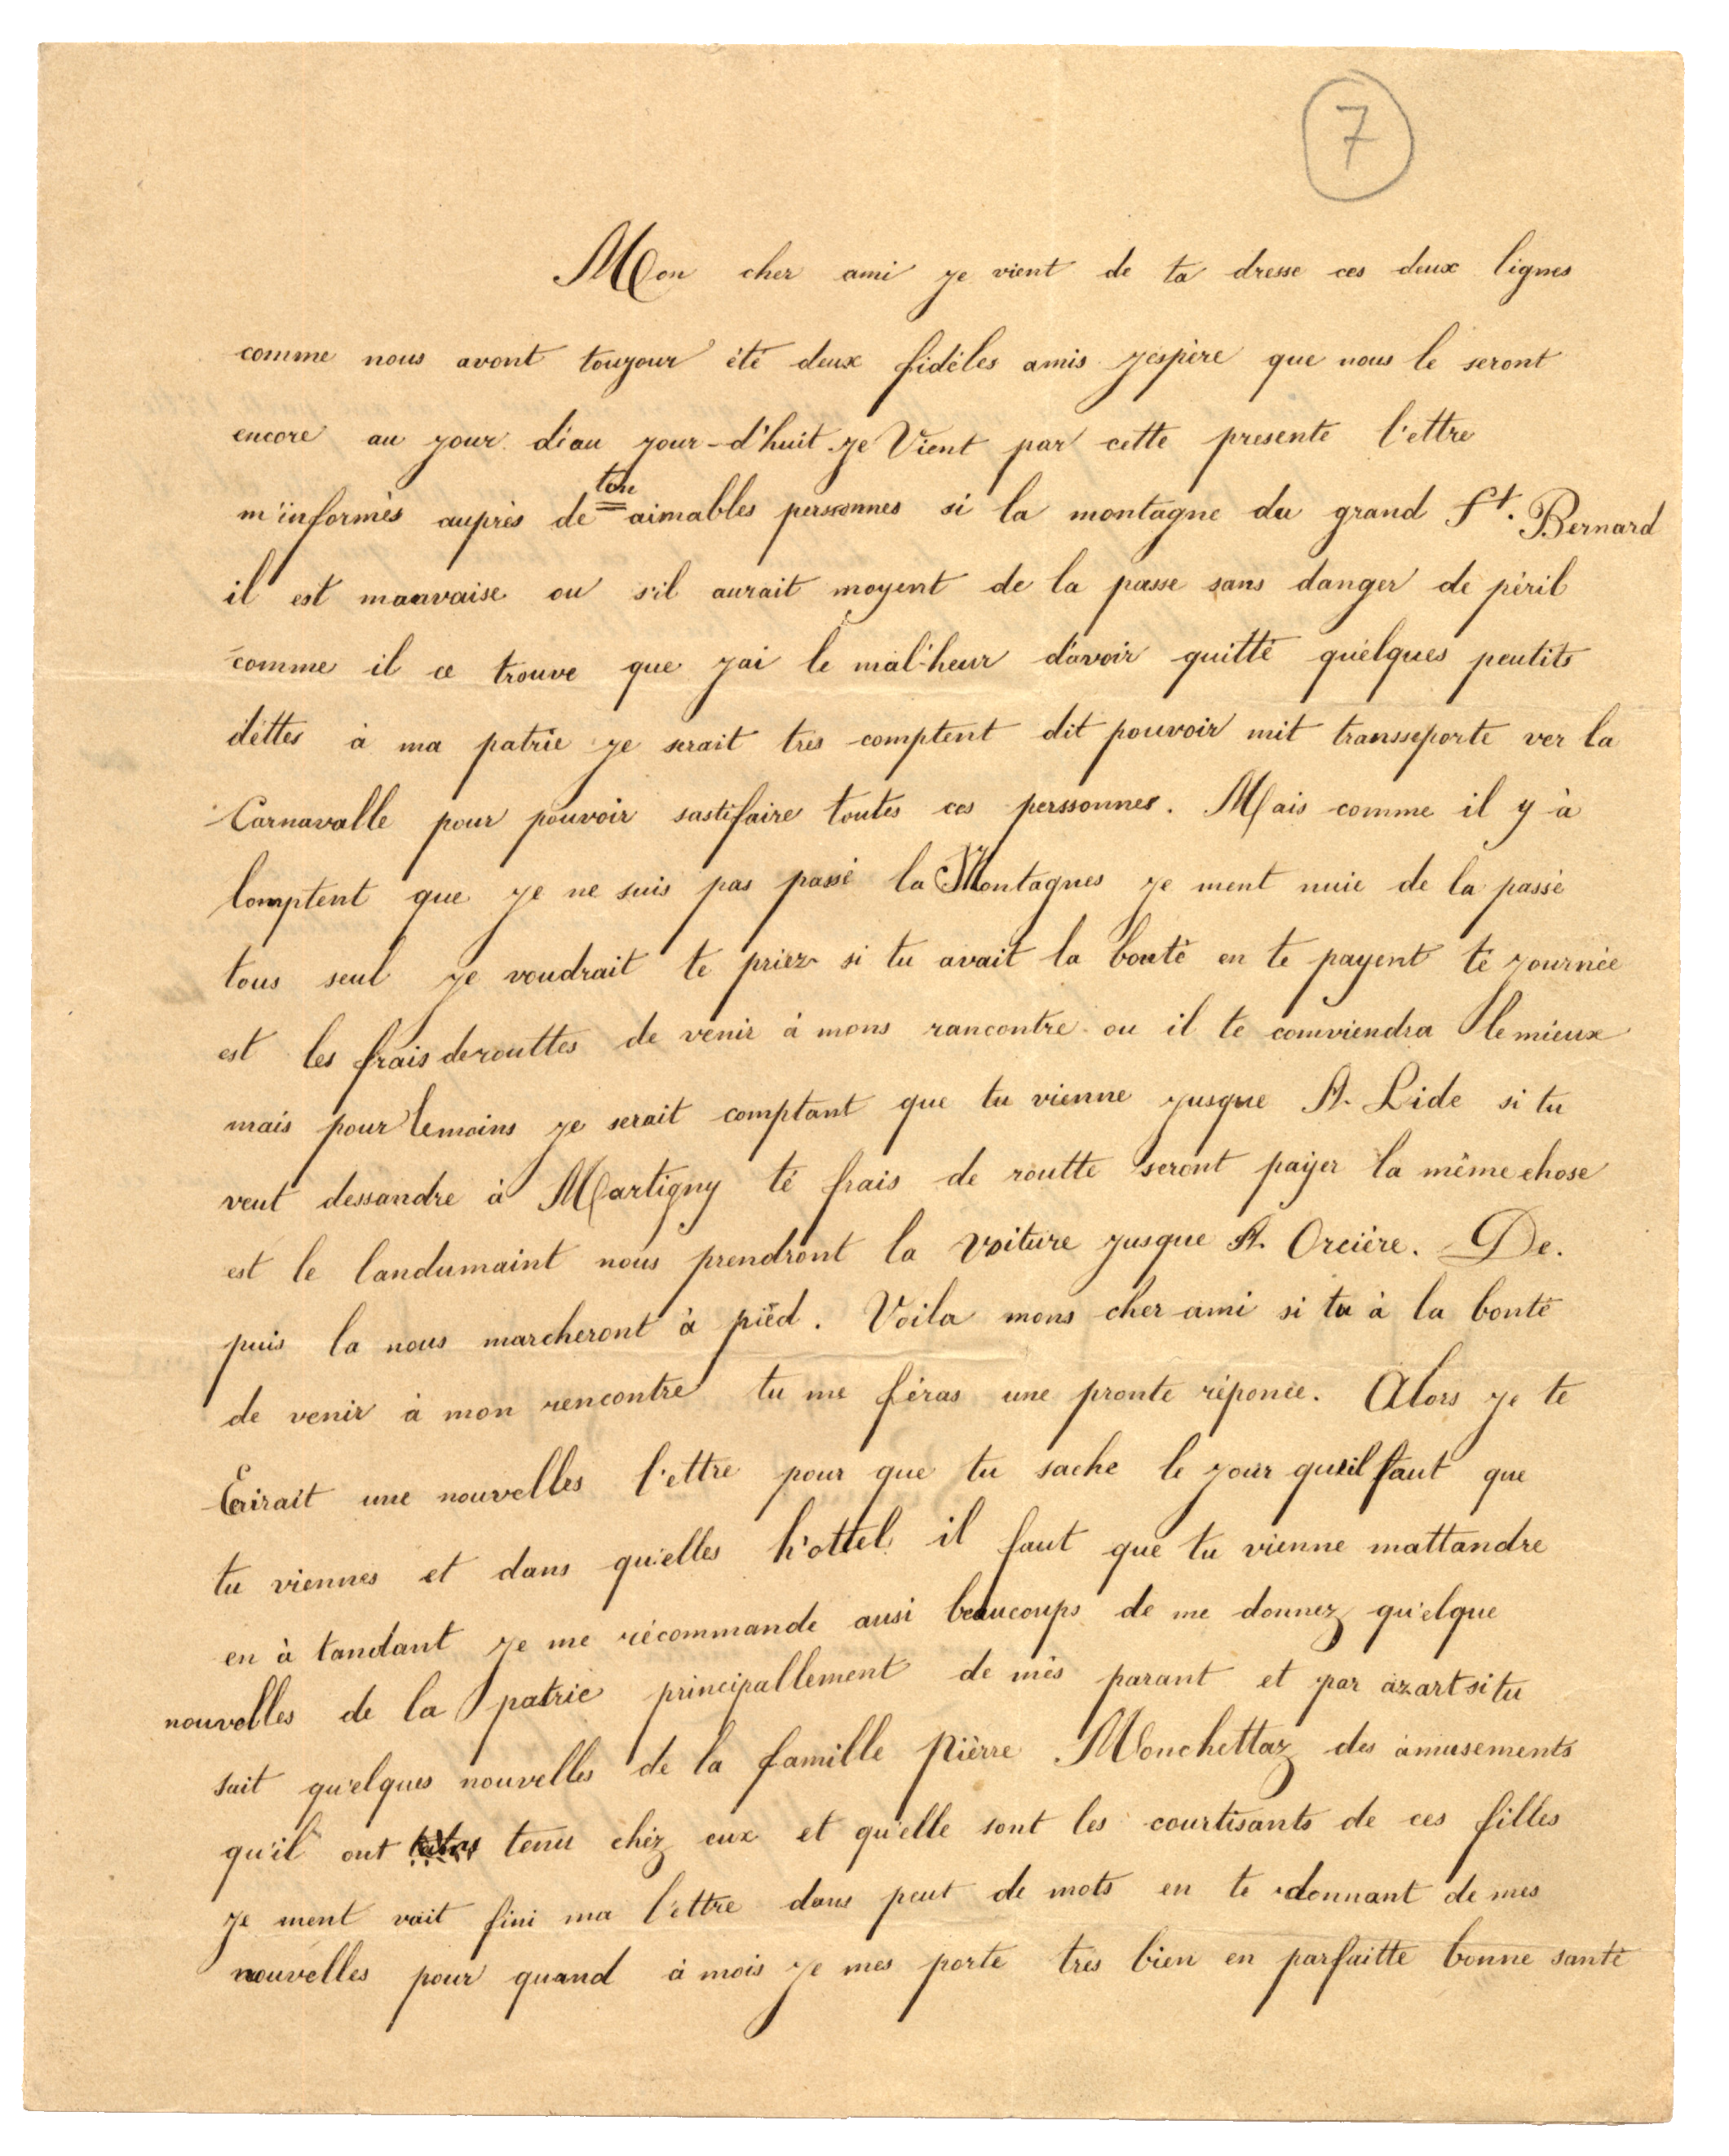 7
Mon cher ami je vient de ta dresse ces deux lignes
comme nous avont toujour été deux fidéles amis j'éspère que nous le seront
encore au jour d'éau jour-d'huit je Vient par cette presente l'ettre
m'informès auprès de ton aimables perssonnes si la montagne du grand St. Bernard
il est mauvaise ou s'il aurait moyent de la passe sans danger de péril
comme il ce trouve que j'ai le mal'heur d'avoir quitté quelques peutits
déttes à ma patrie je serait tres comptent dit pouvoir mit transseporte ver la
Carnavalle pour pouvoir sastifaire toutes ces perssonnes. Mais comme il y à
lomptent que je ne suis pas passé la Montagnes je ment nuie de la passé
tous seul je voudrait te priez si tu avait la bonté en te payent té journée
est les frais de routtes de venir à mons rancontre ou il te comviendra le mieux
mais pour lemoins je serait comptant que tu vienne jusque A. Lide si tu
veut dessandre à Martigny té frais de routte seront payer la même chose
est le landumaint nous prendront la voiture jusque A. Orcière. De.
puis la nous marcheront à piéd. Voila mons cher ami si tu à la bonté
de venir à mon rencontre tu me féras une pronte réponce. Alors je te
Ecrirait une nouvelles l'ettre pour que tu sache le jour qu'il faut que
tu viennes et dans qu'elles h'ottel il faut que tu vienne mattandre
en à tandant je me récommande ausi beaucoups de me donnez qu'elque
nouvelles de la patrie principallement de més parant et par azart si tu
sait qu'elques nouvelles de la famille Pièrre Monchettaz des amusements
qu'il ont tenu chéz eux et qu'elle sont les courtisants de ces filles
je ment vait fini ma l'ettre dans peut de mots en te donnant de mes
nouvelles pour quand à mois je mes porte tres bien en parfaitte bonne santé